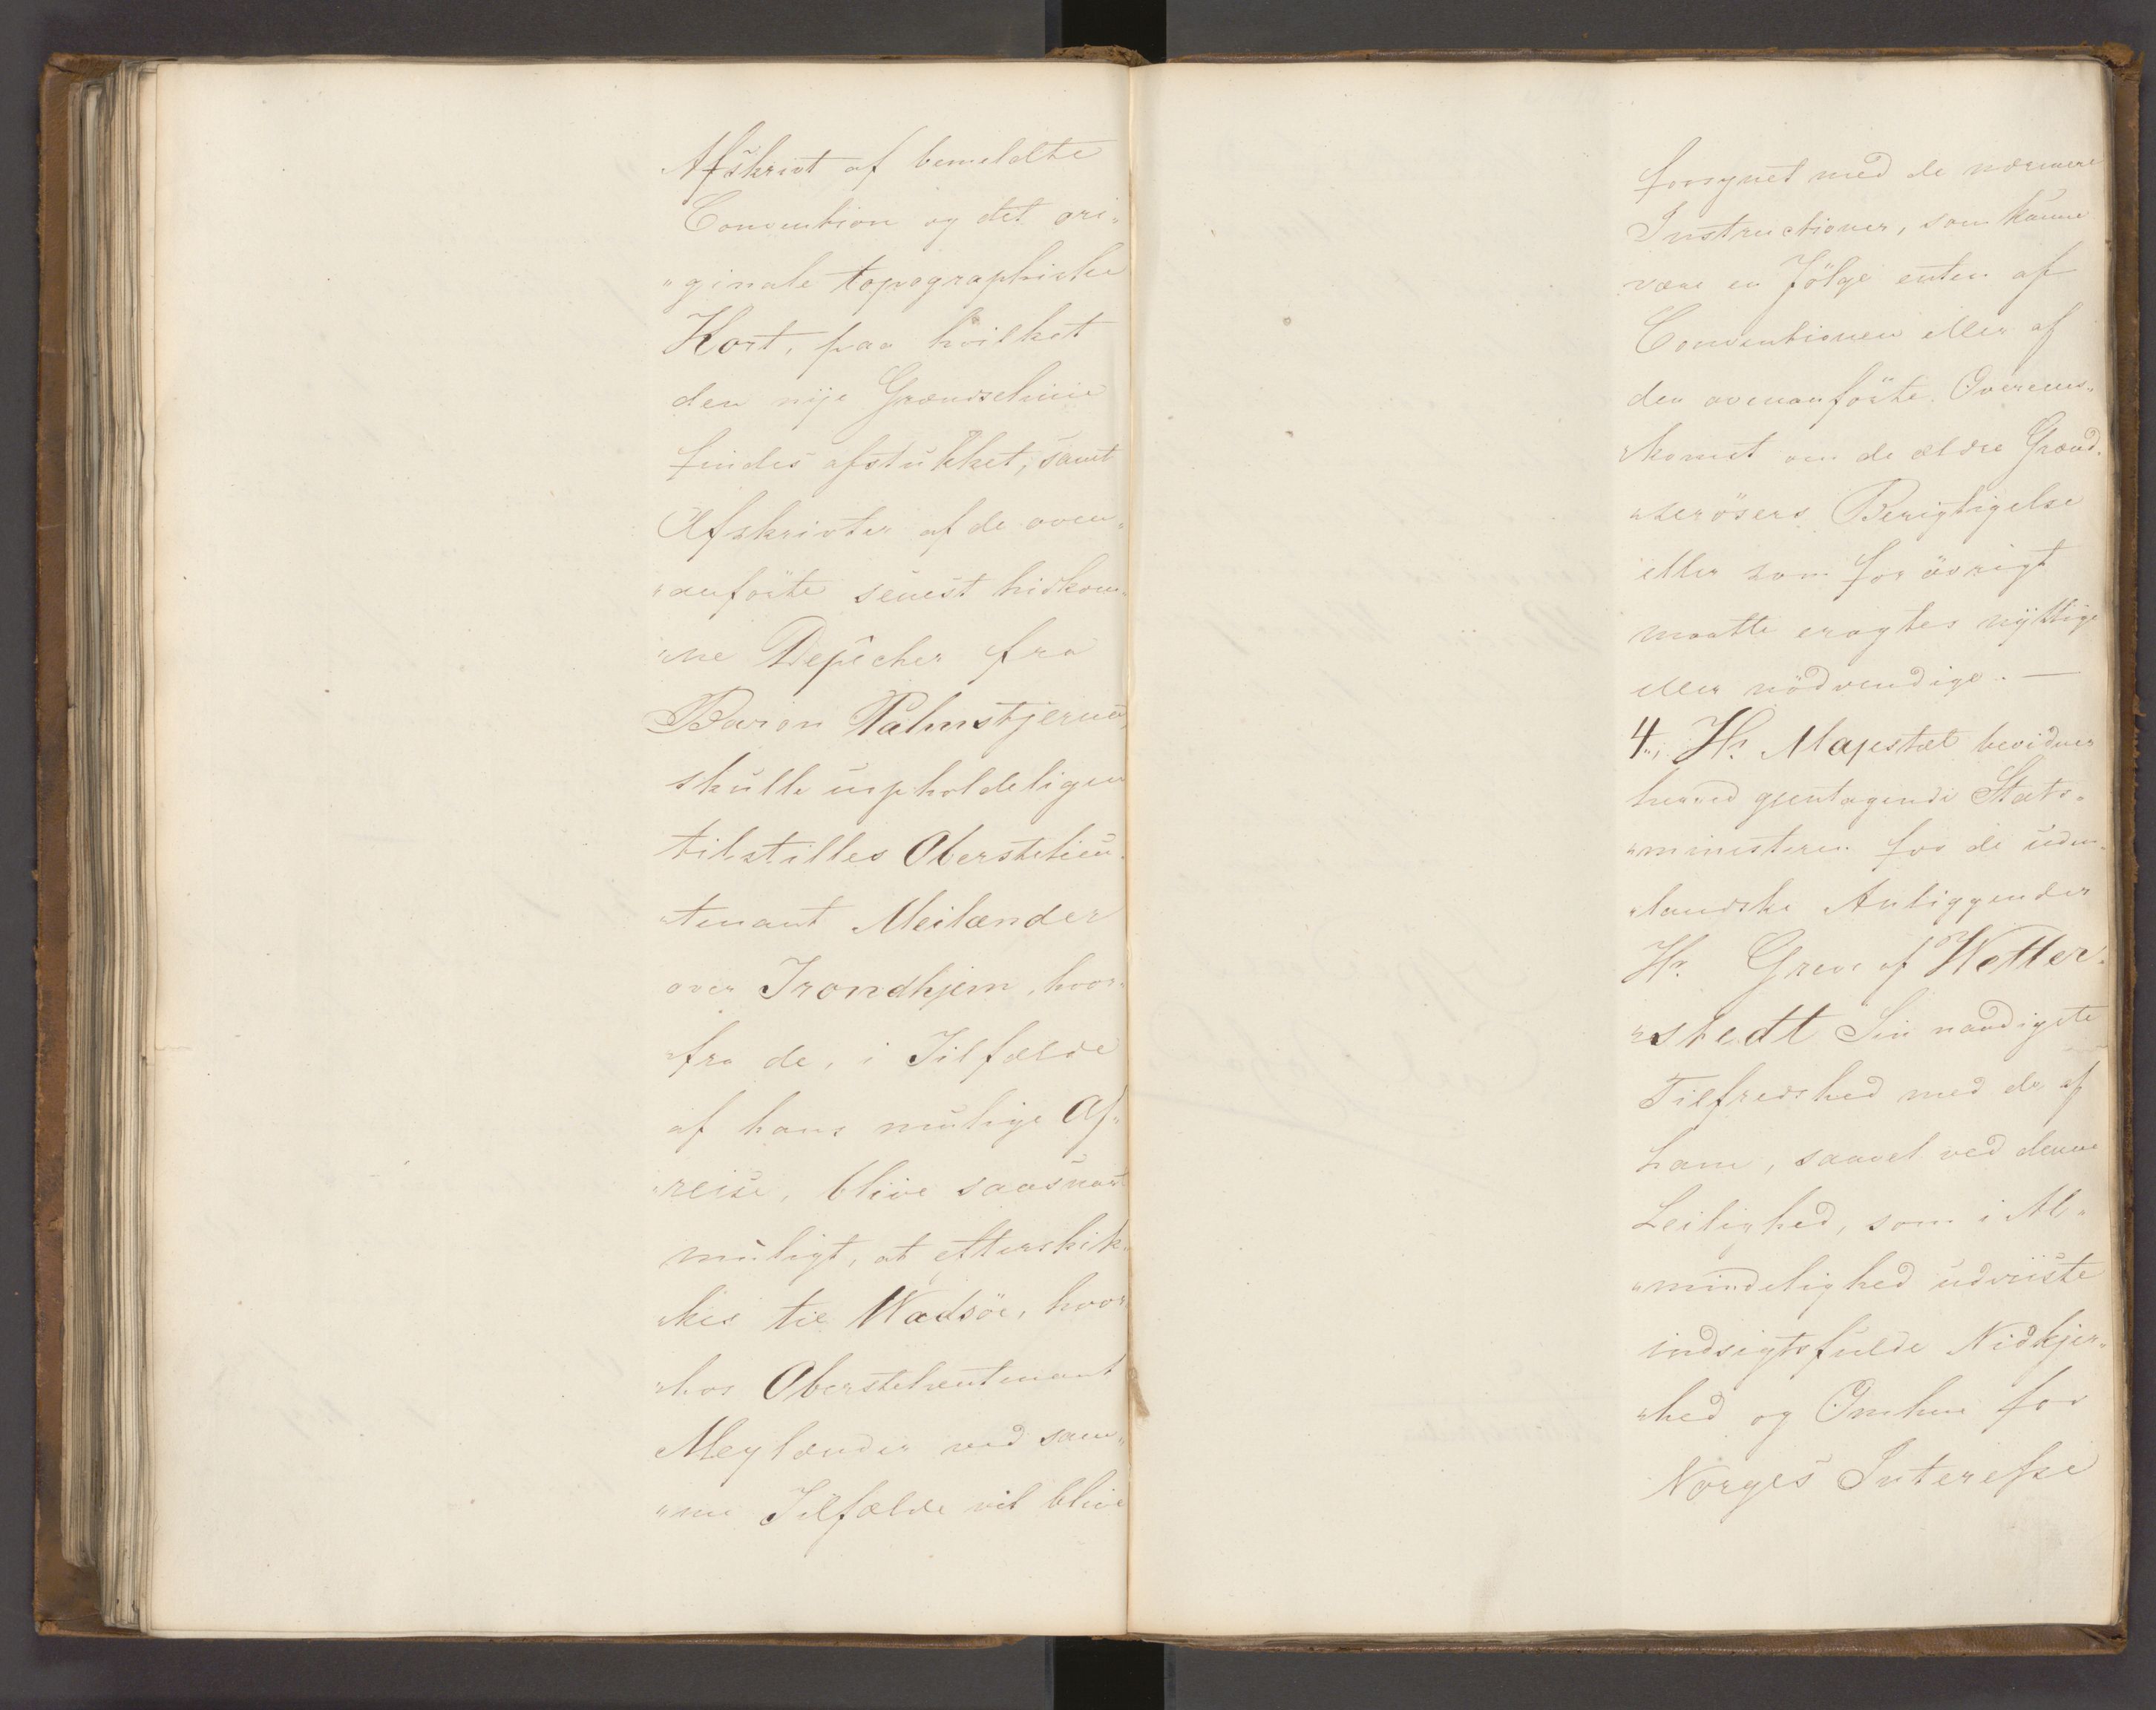 Afskrivt af bemeldte
Convention og det ori„
„ginale topographiske
Kort, paa hvilket
den nye Grændselinie
findes afstukket, samt
Afskrivter af de oven„
„anförte senest hidkom„
„ne Depêcher fra
Baron Palmstjerna,
skulle uopholdeligen
tilstilles Oberstelieu„
„tenant Meilænder
over Trondhjem, hvor„
„fra de, i Tilfælde
af hans mulige Af„
„reise, blive saasnart
muligt, at efterskik„
„kes til Wadsöe, hvor„
„hos Oberstelieutenant
Meylænder ved sam„
„me Tilfælde vil blive
forsynet med de nærmere
Instructioner, som kunne
være en Fölge enten af
Conventionen eller af
den ovenanförte Overens„
„komst om de ældre Grænd„
„serösers Berigtigelse
eller som for övrigt
maatte eragtes nyttige
eller nödvendige. —
4., Hs. Majestæt bevidner
herved gjentagende Stats„
„ministeren for de uden„
„landske Anliggender
Hr. Greve af Wetter„
„stedt Sin naadigste
Tilfredshed med de af
ham, saavel ved denne
Leilighed, som i Al„
„mindelighed udviiste
indsigtsfulde Nidkjer„
„hed og Omhue for
Norges Interesse